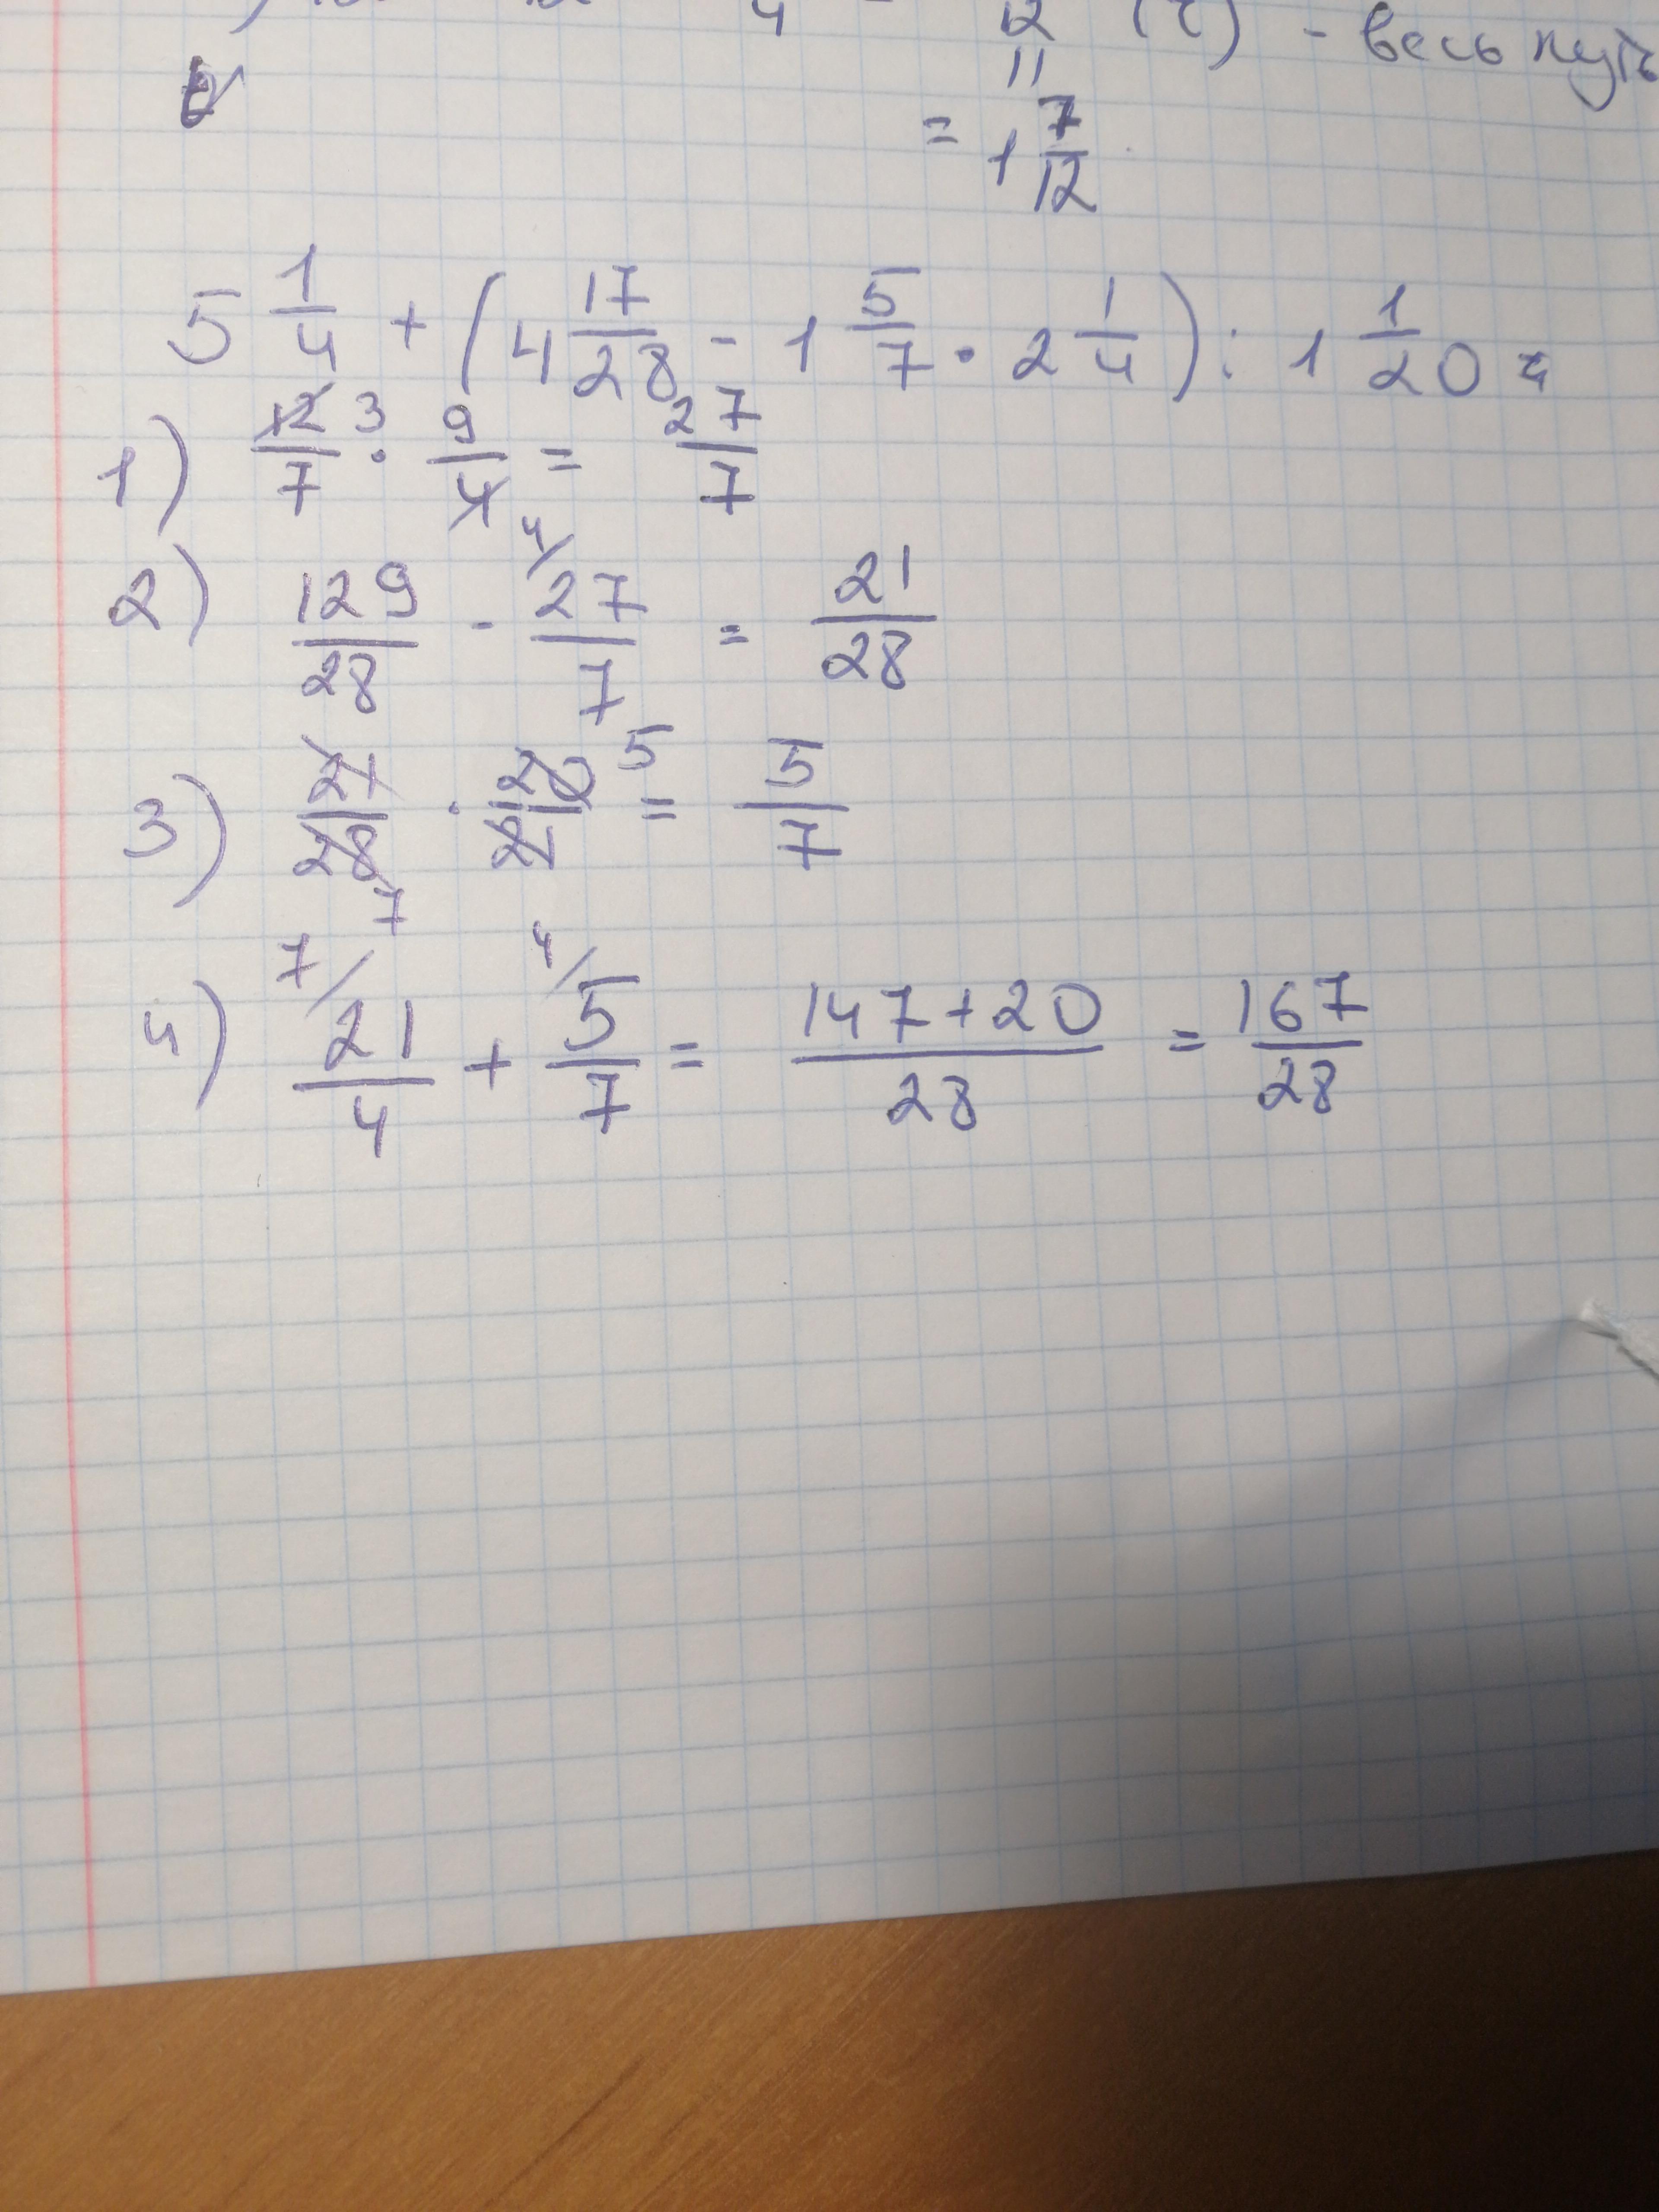 4 12 (ч) - весь путь
11
= 1 7/12
5 1/4 + (4 17/28 - 1 5/7 · 2 1/4) : 1 1/20 =
1) 12/7 3 · 9/4 = 27/7
2) 129/28 - 4/ 27/7 = 21/28
3) 21/28 7 · 20/21 5 = 5/7
4) 7/ 21/4 + 4/ 5/7 = 147+20/28 = 167/28